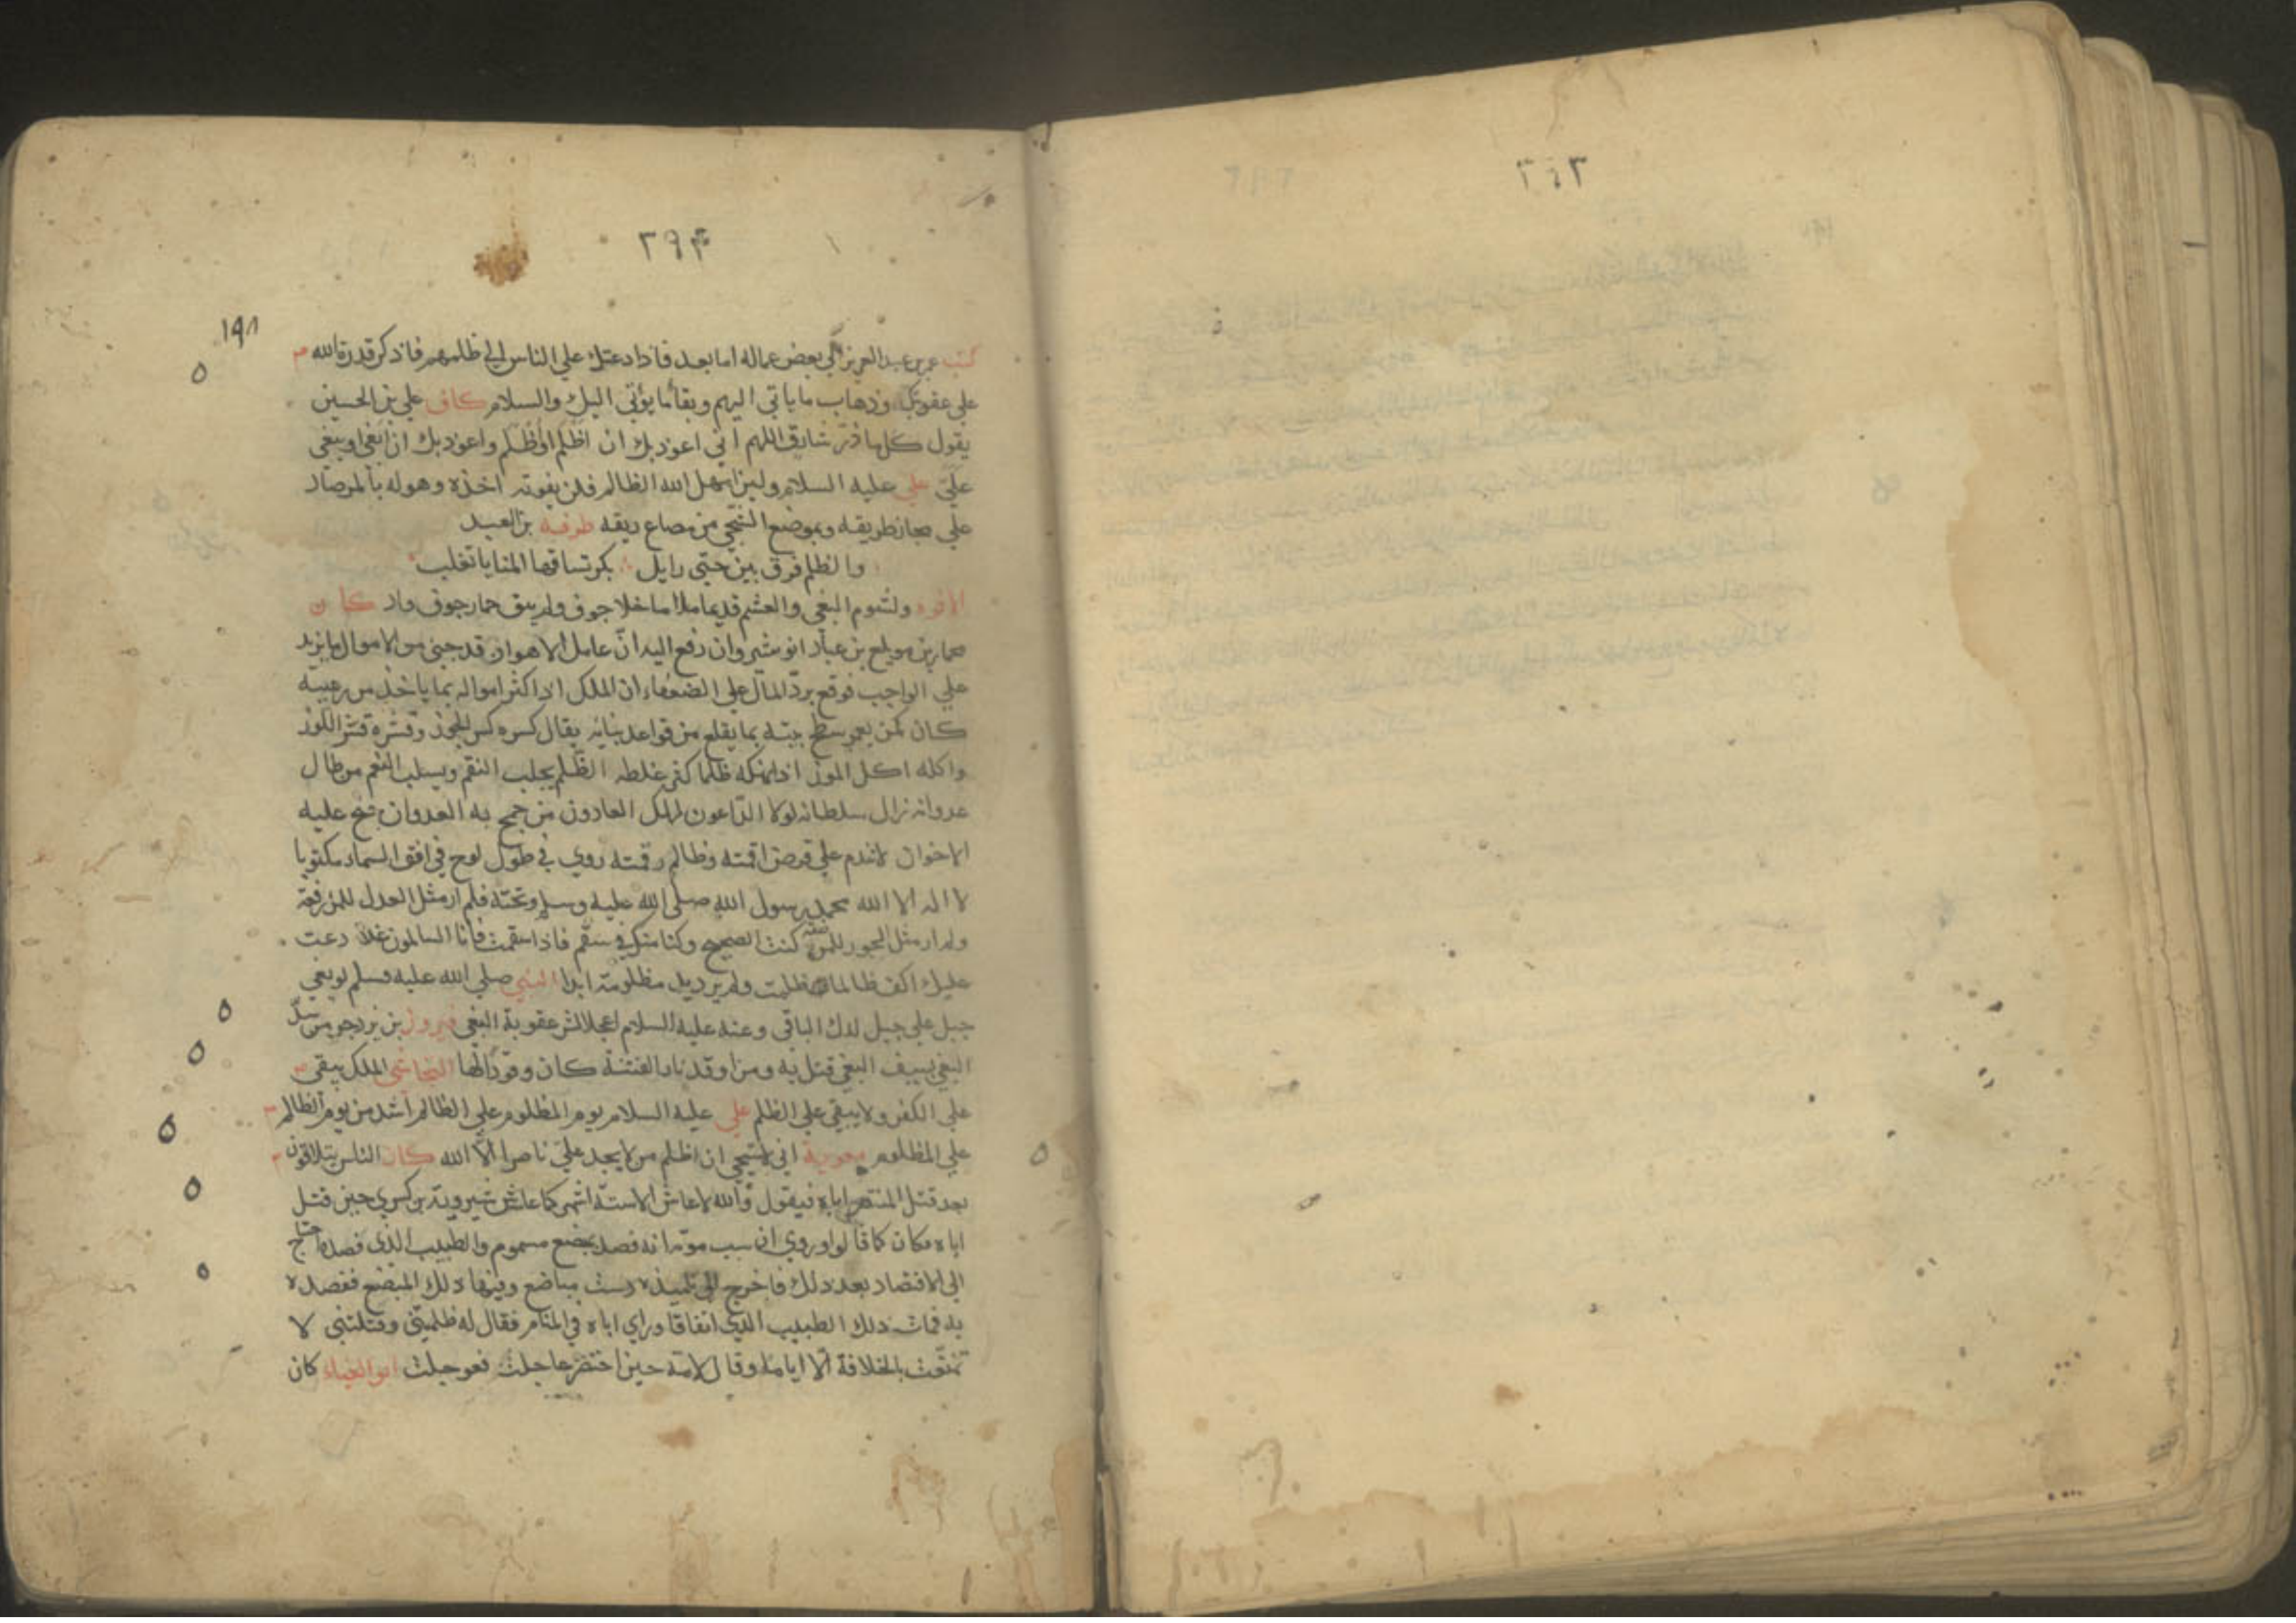 ٢٩٣
٢٩٤
١٩٨
كتب عمر بن عبد العزيز الي بعض عماله اما بعد فاذا دعتك علي الناس الي ظلمهم فاذكر قدرة الله
علي عقوبتك وذهاب ما ياتي اليهم وبقا ما يؤتي اليك والسلام كان علي بن الحسين
يقول كلما ذر شارق اللهم اني اعوذ بك ان اظلم او اظلم واعوذ بك ان ابغي او يبغي
عليّ علي عليه السلام ولين امهل الله الظالم فلن يفوته اخذه وهو له بالمرصاد
علي مجاز طريقه وبموضع الشجي من مساغ ريقه طرفة بن العبد
والظلم فرق بين حيّي وايل بكر تساقها المنايا تغلب
الافوه ولشوم البغي والغشم قديما ما خلا جوف ولم يبق حمار جوف واد كان
حمار بن مويلع بن عباد انوشروان رفع اليه ان عامل الاهواز قد جبي من الاموال ما يزيد
علي الواجب فوقع بردّ المال علي الضعفاء ان الملك اذا كثر امواله بما ياخذ من رعيته
كان كمن يعمر سطح بيته بما يقلع من قواعد بنيانه يقال كسره كسر الجوز وقشره قشر اللوز
واكله اكل الموز الظلم يجلب النقم ويسلب النعم من طال
عدوانه زال سلطانه لولا الداعون لهلك العادون من جمح به العدوان جنح عليه
الاخوان لا تندم علي قرض اقمته وظالم وقمته روي في طول لوح في افق السماء مكتوبا
لا اله الا الله محمد رسول الله صلي الله عليه وسلم وتحته فلم ار مثل العدل للمرء رفعة
ولم ار مثل الجور للمرء كنت الصحيح وكنا منك في سقم فاذا سقمت فانا السالمون غدا دعت
عليك اكف ظالما ظلمت ولم يرد يد مظلومة ابدا النبي صلي الله عليه وسلم لو بغي
جبل علي جبل لدك الباقي وعنه عليه السلام اعجل الشر عقوبة البغي فيروز بن يزدجر من سلّ
البغي بسيف البغي قتل به ومن اوقد نار الفتنة كان وقودا لها النجاشي الملك يبقي
علي الكفر ولا يبقي علي الظلم علي عليه السلام يوم المظلوم علي الظالم اشد من يوم الظالم
علي المظلوم معوية اني لاستحي ان اظلم من لا يجد علي ناصرا الا الله كان الناس يتلاقون
بعد قتل المنتصر اباه فيقول والله لا عاش الا ستة اشهر كما عاش شيرويه بن كسري حين قتل
اباه فكان كما قالوا وروي ان سبب موته انه فصد بمبضع مسموم والطبيب الذي فصده احتاج
الي الافتصاد بعد ذلك فاخرج الي تلميذه دست مباضع وفيها ذلك المبضع ففصده
به فمات ذلك الطبيب الذي اتفاقا وراي اباه في المنام فقال له ظلمتني وقتلتني لا
تمتعت بالخلافة الا اياما وقال لامه حين احتضر عاجلت فعوجلت ابو العيناء كان